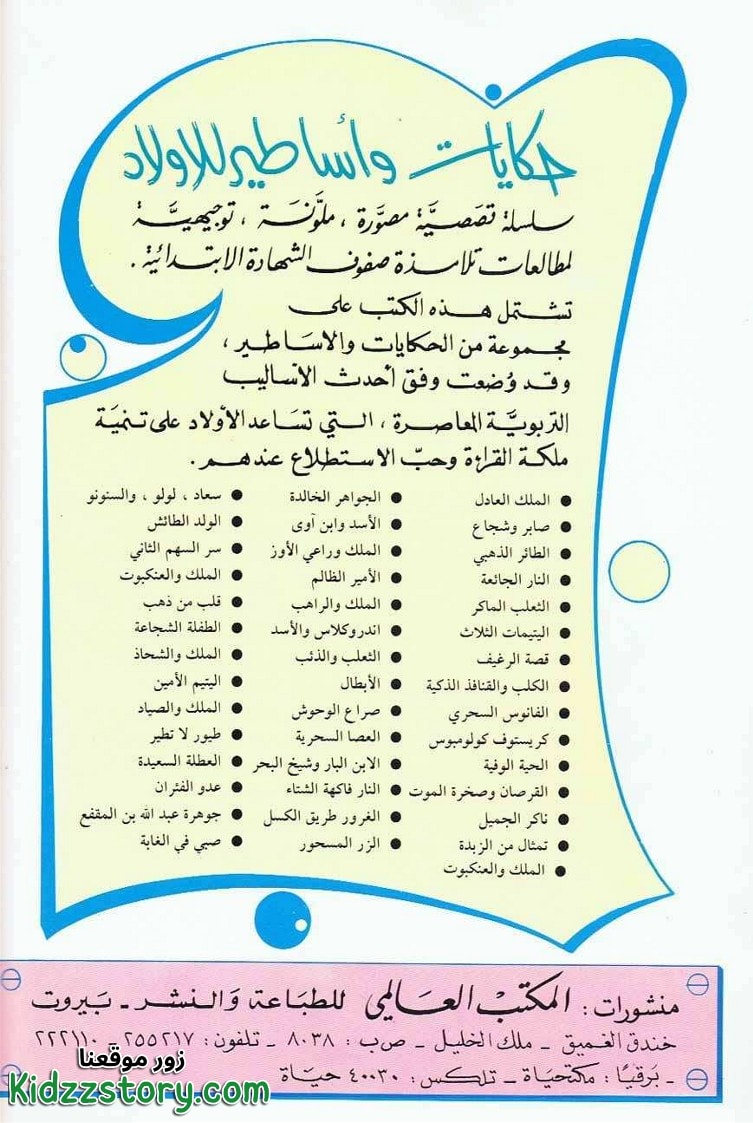 حكايات وأساطير للاولاد
سلسلة قصصيَّة مصوَّرة ، ملوَّنة ، توجيهيَّة
لمطالعات تلامذة صفوف الشهادة الابتدائية .
تشتمل هذه الكتب على
مجموعة من الحكايات والاساطير ،
وقد وُضعت وفق أحدث الأساليب
التربويَّة المعاصرة ، التي تساعد الأولاد على تنمية
ملكة القراءة وحبّ الاستطلاع عندهم .
● الملك العادل
● صابر وشجاع
● الطائر الذهبي
● النار الجائعة
● الثعلب الماكر
● اليتيمات الثلاث
● قصة الرغيف
● الكلب والقنافذ الذكية
● الفانوس السحري
● كريستوف كولومبوس
● الحية الوفية
● القرصان وصخرة الموت
● ناكر الجميل
● تمثال من الزبدة
● الملك والعنكبوت
● الجواهر الخالدة
● الأسد وابن آوى
● الملك وراعي الأوز
● الأمير الظالم
● الملك والراهب
● اندروكلاس والأسد
● الثعلب والذئب
● الأبطال
● صراع الوحوش
● العصا السحرية
● الابن البار وشيخ البحر
● النار فاكهة الشتاء
● الغرور طريق الكسل
● الزر المسحور
● سعاد ، لولو ، والسنونو
● الولد الطائش
● سر السهم الثاني
● الملك والعنكبوت
● قلب من ذهب
● الطفلة الشجاعة
● الملك والشحاذ
● اليتيم الأمين
● الملك والصياد
● طيور لا تطير
● العطلة السعيدة
● عدو الفئران
● جوهرة عبد الله بن المقفع
● صبي في الغابة
منشورات : المكتب العالمي للطباعة والنشر - بيروت
خندق الغميق - ملك الخليل - ص ب : ٨٠٣٨ - تلفون : ٢٥٥٢١٧ - ٢٢٢١١٠
- بَرقيًا : مكتحياة - تلكس : ٤٠٠٣٠ حياة
زور موقعنا
Kidzzstory.com